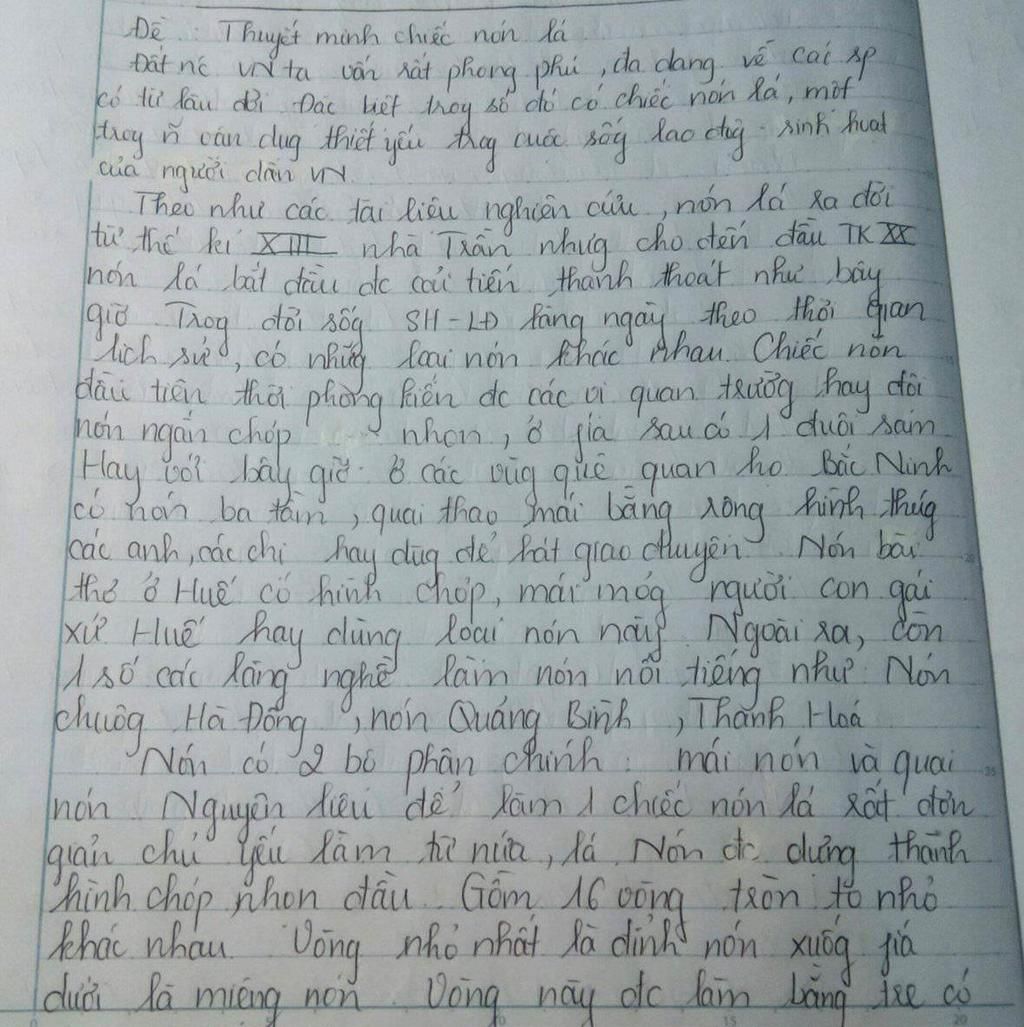 Đề : Thuyết minh chiếc nón lá
Đất nc VN ta vốn rất phong phú, đa dạng về các sp
có từ lâu đời. Đặc biệt trog số đó có chiếc nón lá, một
trog ~ vận dụg thiết yếu trog cuộc sốg lao độg - sinh hoạt
của người dân VN.
Theo như các tài liệu nghiên cứu, nón lá ra đời
từ thế kỉ XIII nhà Trần nhưg cho đến đầu TK XX
nón lá bắt đầu đc cải tiến thanh thoát như bây
giờ. Trog đời sốg SH-LĐ hàng ngày theo thời gian
lịch sử, có nhữg loại nón khác nhau. Chiếc nón
đầu tiên thời phong kiến đc các vị quan trường hay đội
nón ngắn chóp nhọn, ở fía sau có 1 đuôi
Hay với bây giờ ở các vùg quê quan họ Bắc Ninh
có nón ba tầm, quai thao mái bằng rộng hình thúg
các anh, các chị hay dùg để hát giao duyên. Nón bài
thơ ở Huế có hình chóp, mái mỏg người con gái
xứ Huế hay dùng loại nón này. Ngoài ra, còn
1 số các làng nghề làm nón nổi tiếng như: Nón
chuôg Hà Đông, nón Quảng Bình, Thanh Hoá
Nón có 2 bộ phận chính: mái nón và quai
nón. Nguyên liệu để làm 1 chiếc nón lá rất đơn
giản chủ yếu làm từ nứa, lá. Nón đc dựng thành
hình chóp nhọn đầu. Gồm 16 vòng tròn to nhỏ
khác nhau. Vòng nhỏ nhất là đỉnh nón xuốg fía
dưới là miệng nón. Vòng này đc làm bằng tre có